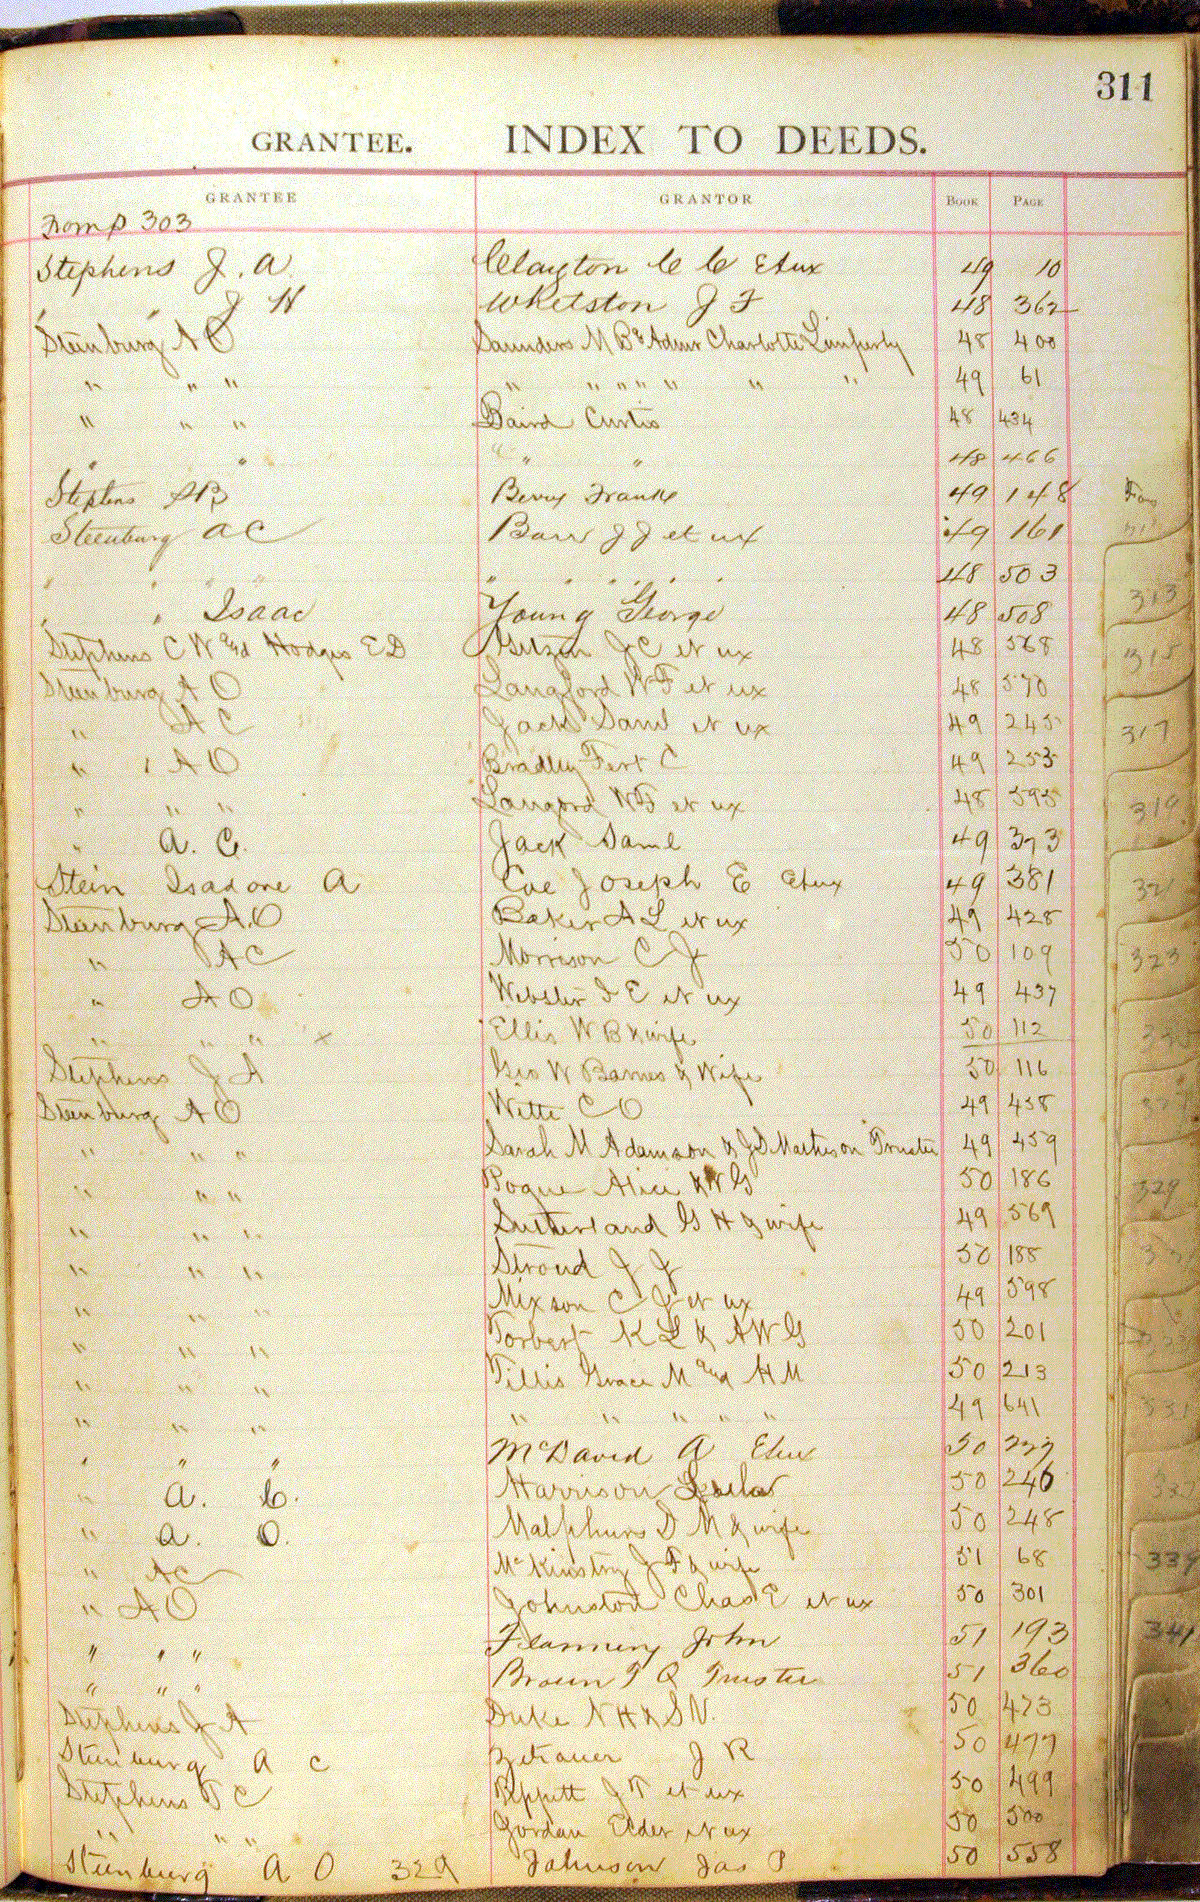 311
GRANTEE. INDEX TO DEEDS.
GRANTEE GRANTOR BOOK PAGE
From p 303
Stephens J. A Clayton C C Etux 49 10
" " J H Whetston J F 48 362
Steenburg A O Saunders M B & Admr Charlotte Limperly 48 400
" " " " " " " " " " 49 61
" " " Baird Curtis 48 434
" " " " 48 466
Stephens S B Berry Frank 49 148
Steenburg A C Barr J J et ux 49 161
" " " " " " " " " 48 503
" " Isaac Young George 48 508
Stephens C W and Hodges E D Getzen J C et ux 48 568
Steenburg A O Langford W F et ux 48 570
" A C Jack Saml et ux 49 245
" " A O Bradley Fert C 49 253
" " " Langford W F et ux 48 595
" A. C. Jack Saml 49 373
Stein Isadore A Coe Joseph E Etux 49 381
Steenburg A. O Baker A L et ux 49 428
" A C Morrison C J 50 109
" A O Webster I E et ux 49 437
" " " x Ellis W B & wife 50 112
Stephens J A Geo W Barnes & Wife 50 116
Steenburg A O Witte C O 49 458
" " " Sarah M Adamson & J S Matheson Trustee 49 459
" " " Pogue Alice & W G 50 186
" " " Sutherland G H & wife 49 569
" " " Stroud J J 50 188
" " " Mixson C J et ux 49 598
" " " Torbert K L & A W G 50 201
" " " Tillis Grace M and H M 50 213
" " " " " " " " 49 641
" " " McDavid A Etux 50 227
" A. C. Harrison Leila 50 246
" A. O. Malphurs D M & wife 50 248
" A C McKinstry J F & wife 51 68
" A O Johnston Chas E et ux 50 301
" " " Flannery John 51 193
" " " Brown T Q Trustee 51 360
Stephens J A Duke N H & S V. 50 473
Steenburg A C Zetrouer J R 50 477
Stephens T C Beppett J T et ux 50 499
" " " Jordan Elder et ux 50 500
Steenburg A O 329 Johnson Jas P 50 558
313
315
317
319
321
323
329
339
341